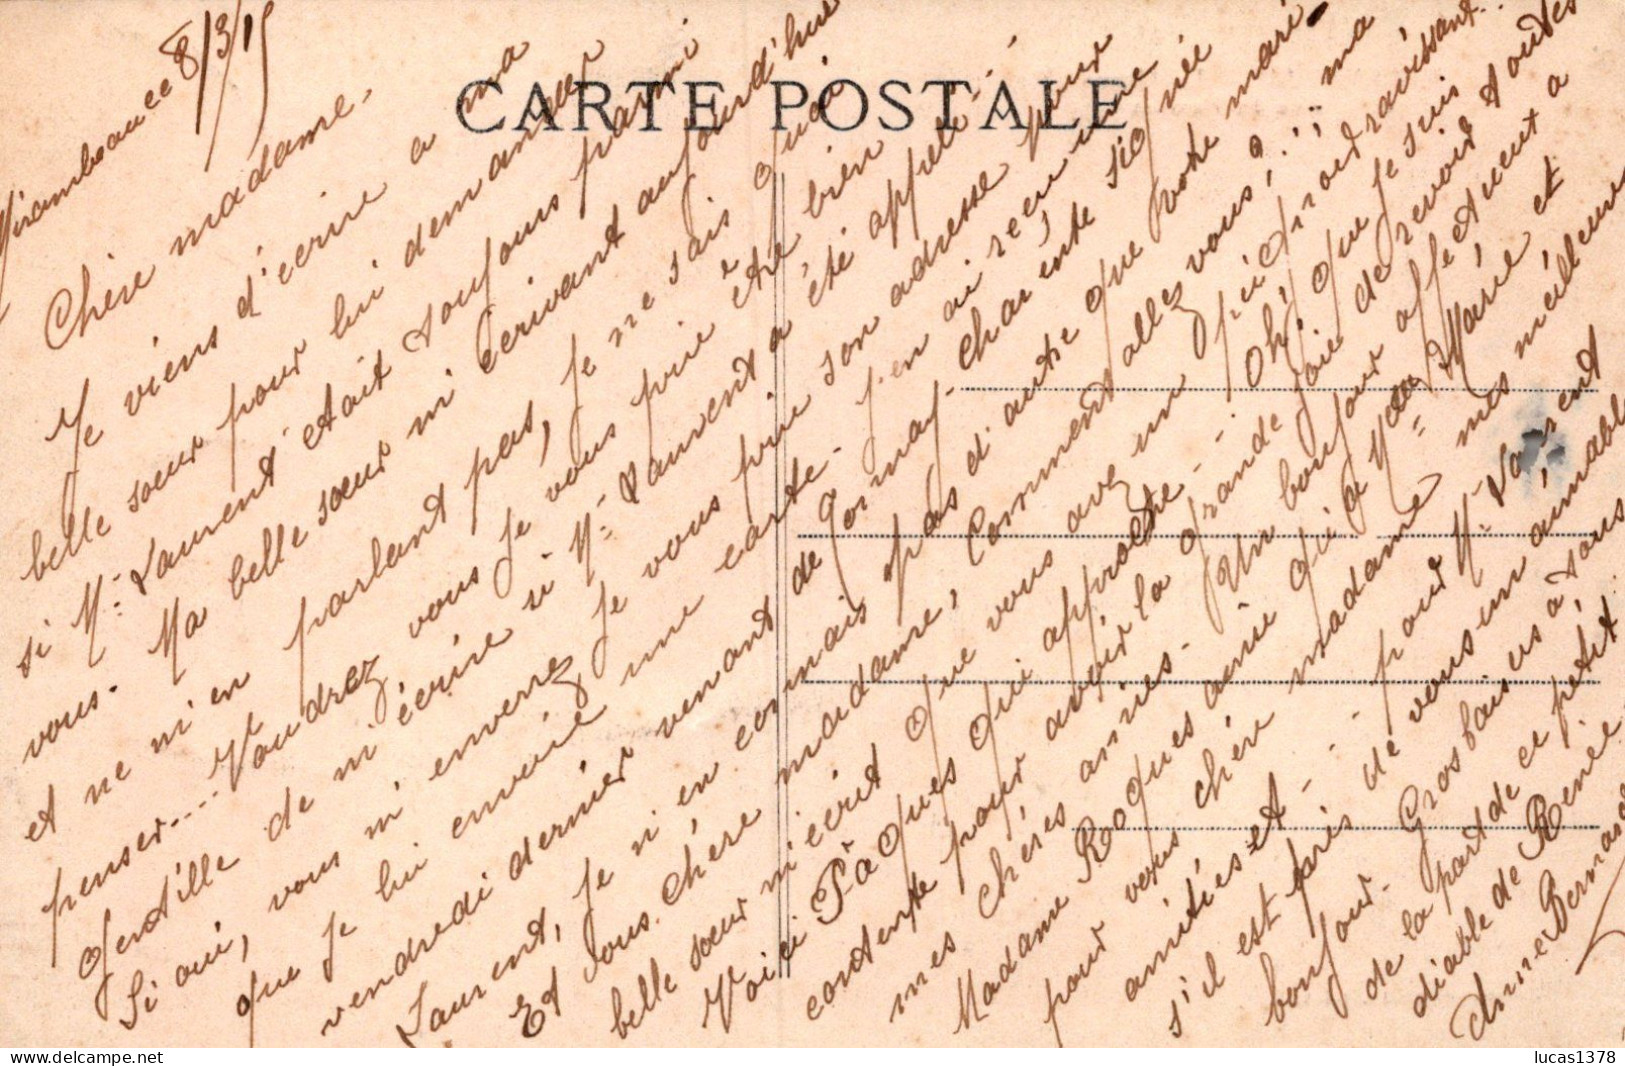 CARTE POSTALE
Mirambeau ce 8/3/15
Chère madame,
Je viens d'écrire a ma
belle sœur pour lui demander
si Mr Laurent était toujours parmi
vous. Ma belle sœur m'écrivant aujourd'hui
et ne m'en parlant pas, je ne sais quoi
penser... Voudrez vous je vous prie être bien
gentille de m'écrire si Mr Laurent a été appelé.
Si oui, vous m'enverrez je vous prie son adresse pour
que je lui envoie une carte. J'en ai reçu une
vendredi dernier venant de Jornay-Charente signée
Laurent, je n'en connais pas d'autre que votre mari.
Et vous chère madame, comment allez vous?.. ma
belle sœur m'écrit que vous avez un ravissant..
Voici Pâques qui approche - oh! que je suis
contente pour avoir la grande joie de revoir toutes
mes chères amies. Un bonjour affectueux a
Madame Roques ainsi qu'a Melle Marie et
pour vous chère madame mes meilleures
amitiés et - - pour Mr Laurent
s'il est près de vous un aimable
bonjour. Gros baisers à tous
de la part de ce petit
diable de Renée
Bernard
lucas1378